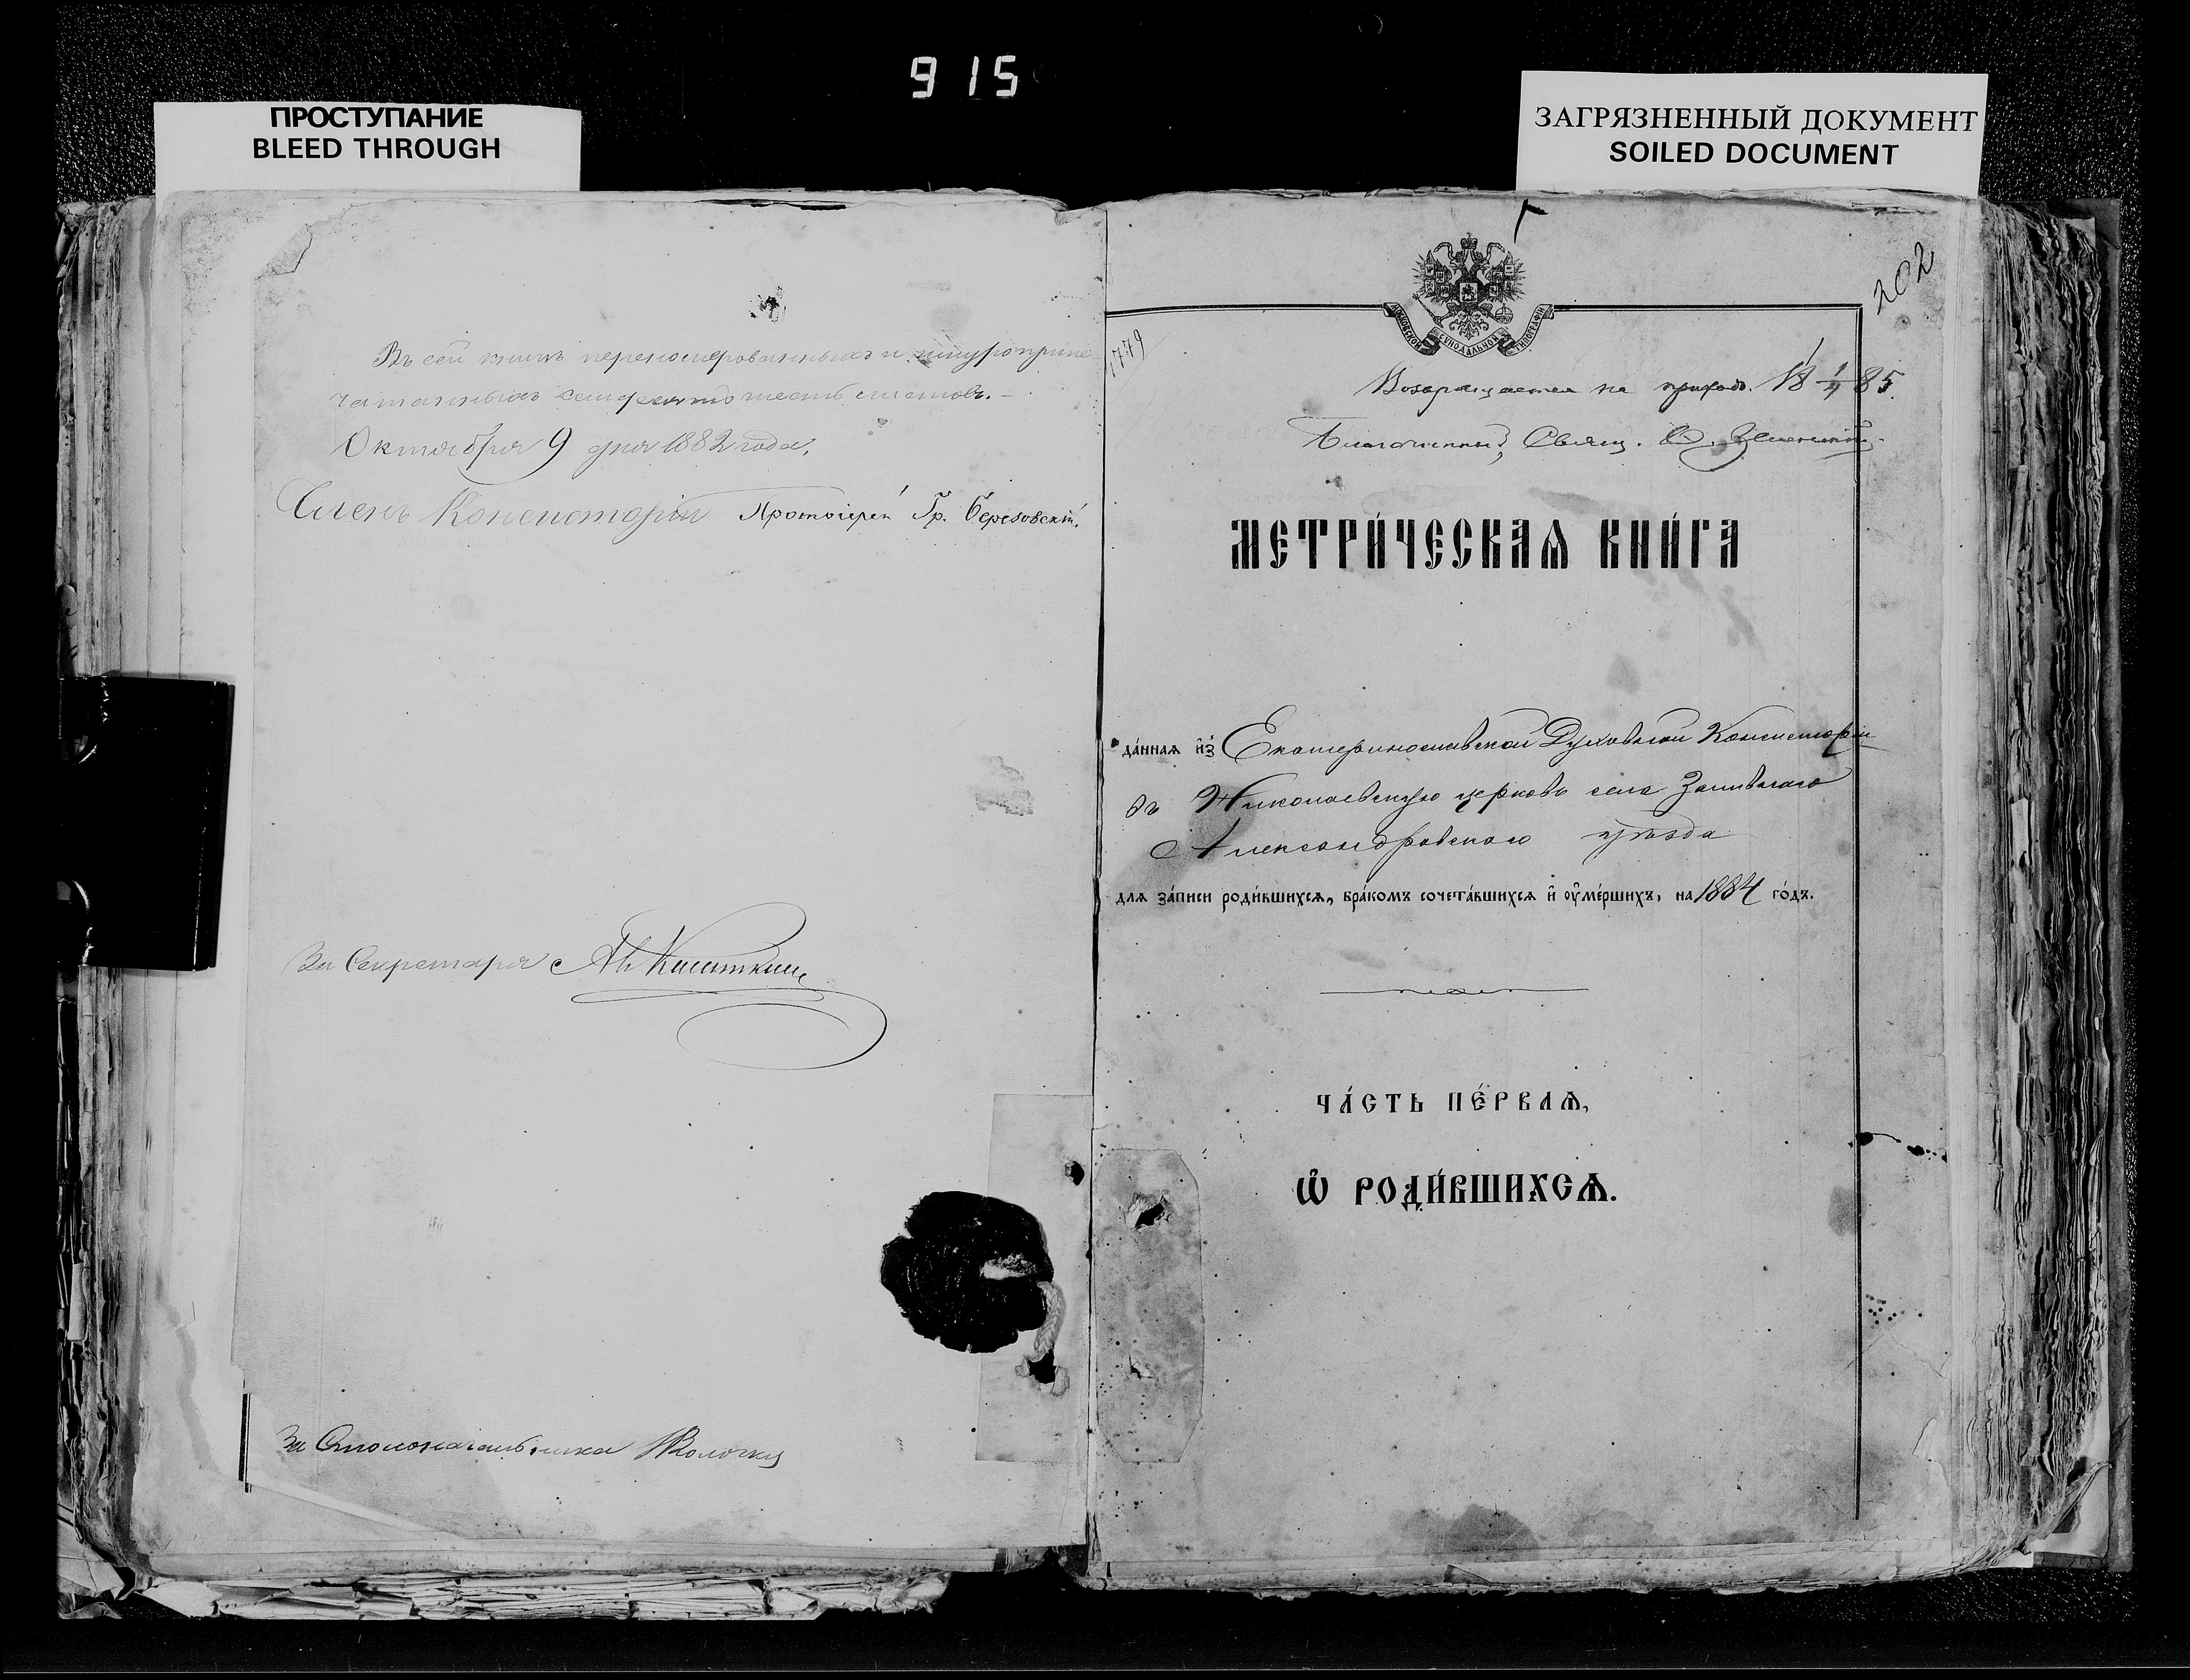 915
ПРОСТУПАНИЕ
BLEED THROUGH
ЗАГРЯЗНЕННЫЙ ДОКУМЕНТ
SOILED DOCUMENT
Въ сей книгѣ перенумерованныхъ и шнуроприпе
чатанныхъ семьдесятъ шесть листовъ.
Октября 9 дня 1882 года.
Членъ Консисторіи Протоіерей Гр. Березовскій.
За Секретаря
За Столоначальника
202
1779
МОСКОВСКОЙ СѴНОДАЛЬНОЙ ТИПОГРАФІИ
Возвращается на приходъ. 18 85.
Благочинный, Свящ.
МЕТРИ́ЧЕСКАѦ КНИ́ГА
да́ннаѧ и҆з̾ Екатеринославской Духовной Консисторіи
въ Николаевскую церковь села Заливнаго
Александровскаго уѣзда
для за́писи роди́вшихсѧ, бра́комъ сочета́вшихсѧ и҆ ᲂу҆ме́ршихъ, на 1884 го́дъ.
ЧА́СТЬ ПЕ́РВАѦ,
Ѽ РОДИ́ВШИХСѦ.